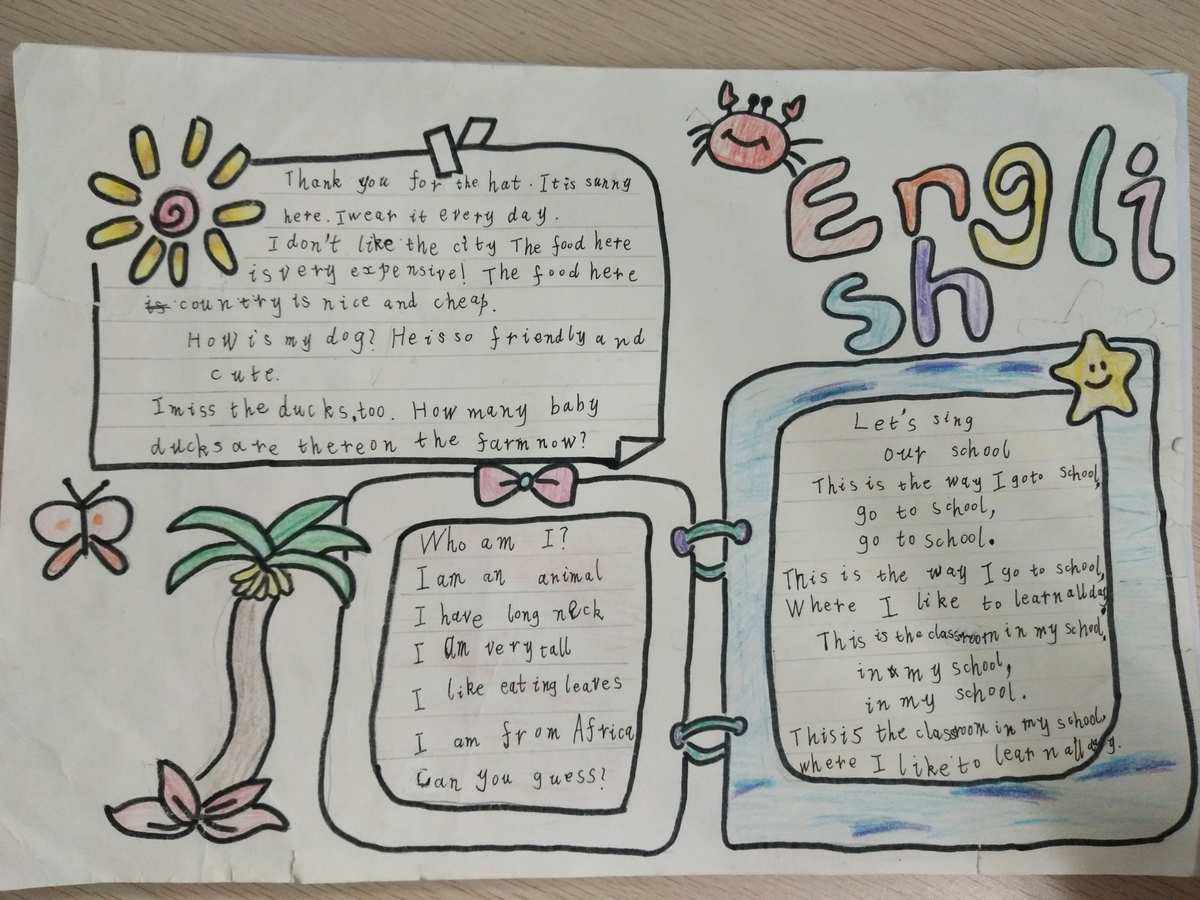 English
Thank you for the hat. It is sunny
here. I wear it every day.
I don't like the city The food here
is very expensive! The food here
is country is nice and cheap.
How is my dog? He is so friendly and
cute.
I miss the ducks, too. How many baby
ducks are there on the farm now?
Who am I?
I am an animal
I have long neck
I am very tall
I like eating leaves
I am from Africa
Can you guess?
Let's sing
our school
This is the way I go to school,
go to school,
go to school.
This is the way I go to school,
Where I like to learn all day.
This is the classroom in my school,
in my school,
in my school.
This is the classroom in my school,
where I like to learn all day.